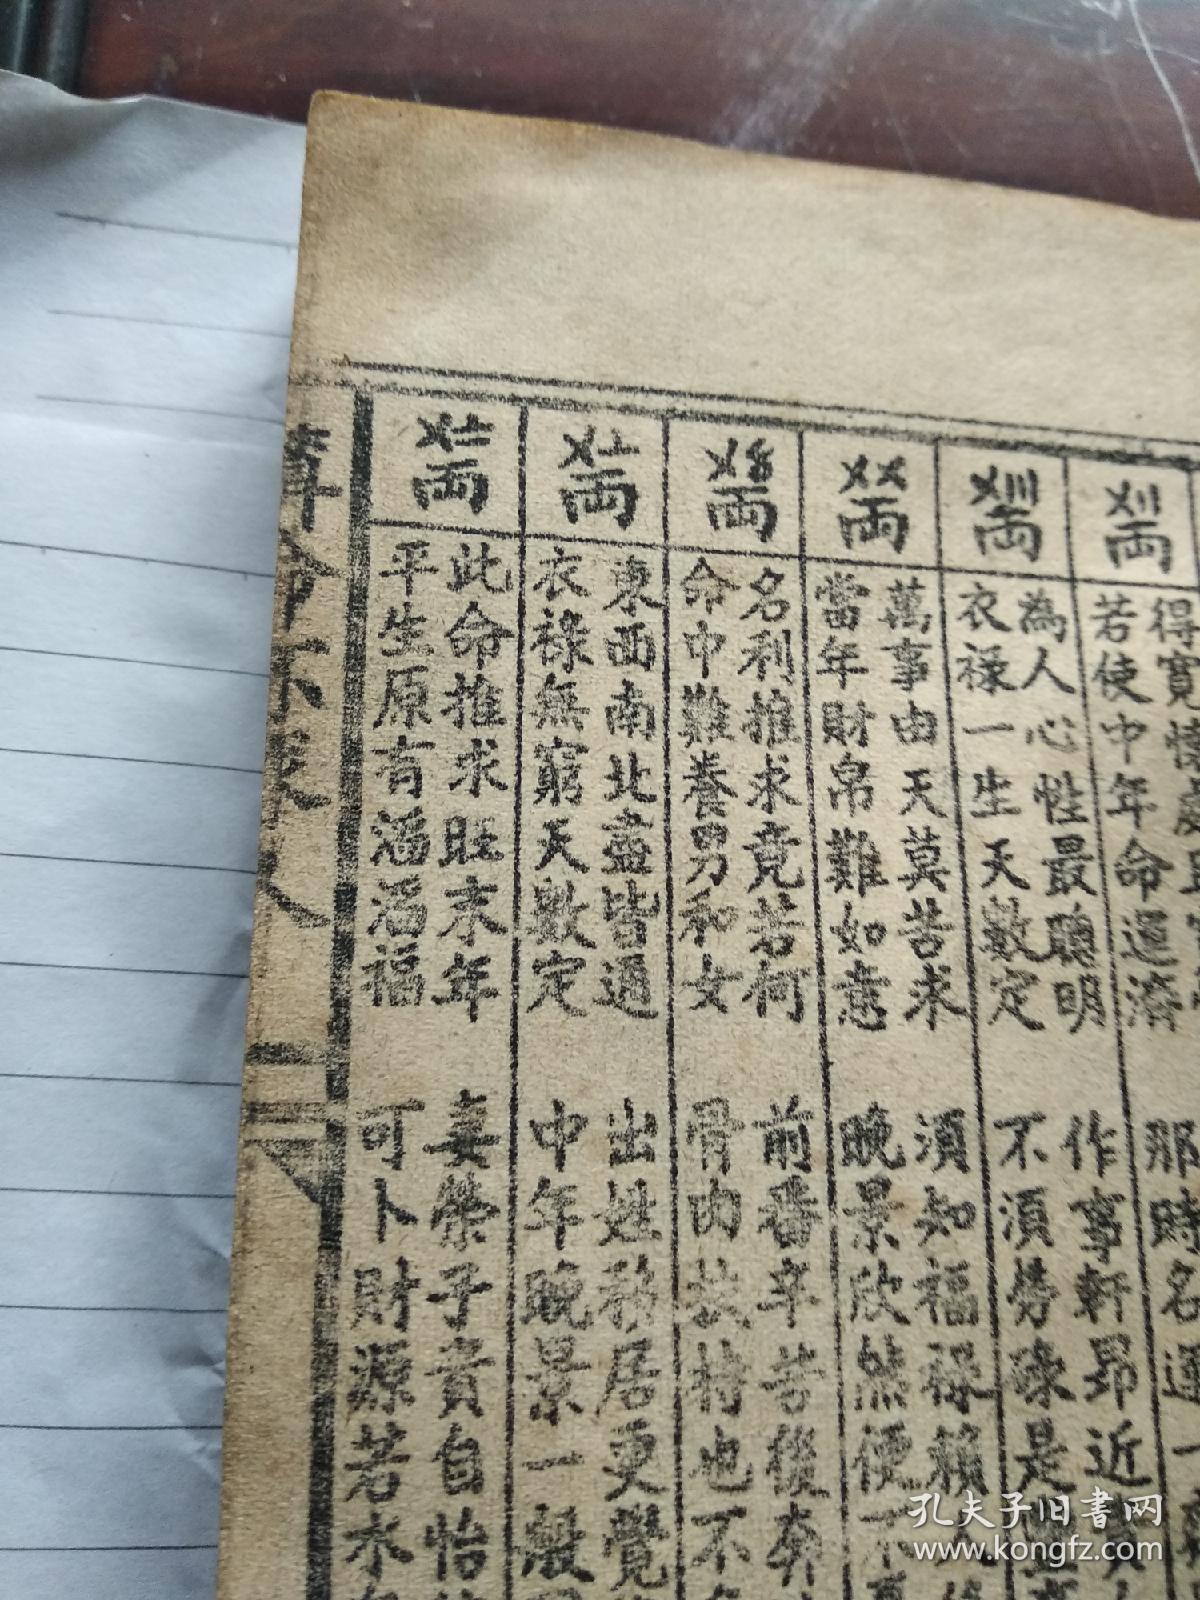 得寬懷處
若使中年命運濟
那時名運一
為人心性最聰明
作事軒昂近
衣祿一生天數定
不須勞碌是
萬事由天莫苦求
須知福祿賴人
當年財帛難如意
晚景欣然便不
名利推求竟若何
前番辛苦後奔
命中難養男和女
骨肉扶持也不
東西南北盡皆通
出姓移居更覺
衣祿無窮天數定
中年晚景一般
此命推求旺末年
妻榮子貴自怡
平生原有滔滔福
可卜財源若水
算命不求人
孔夫子旧書网
www.kongfz.com